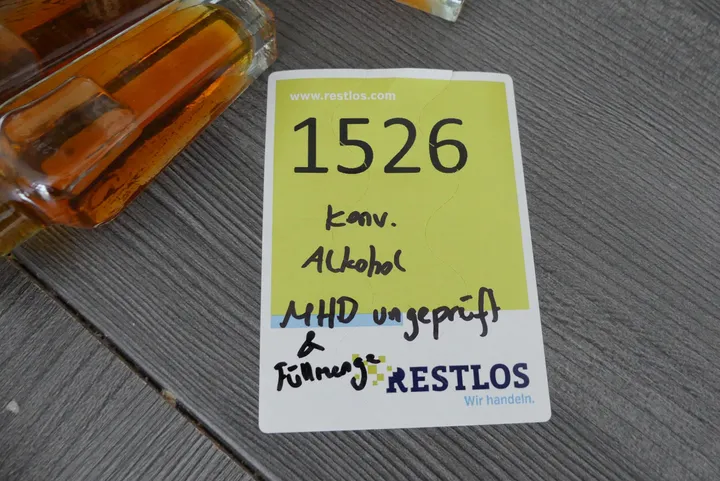 www.restlos.com
1526
Konv.
Alkohol
MHD ungeprüft
&
Füllmenge
RESTLOS
Wir handeln.